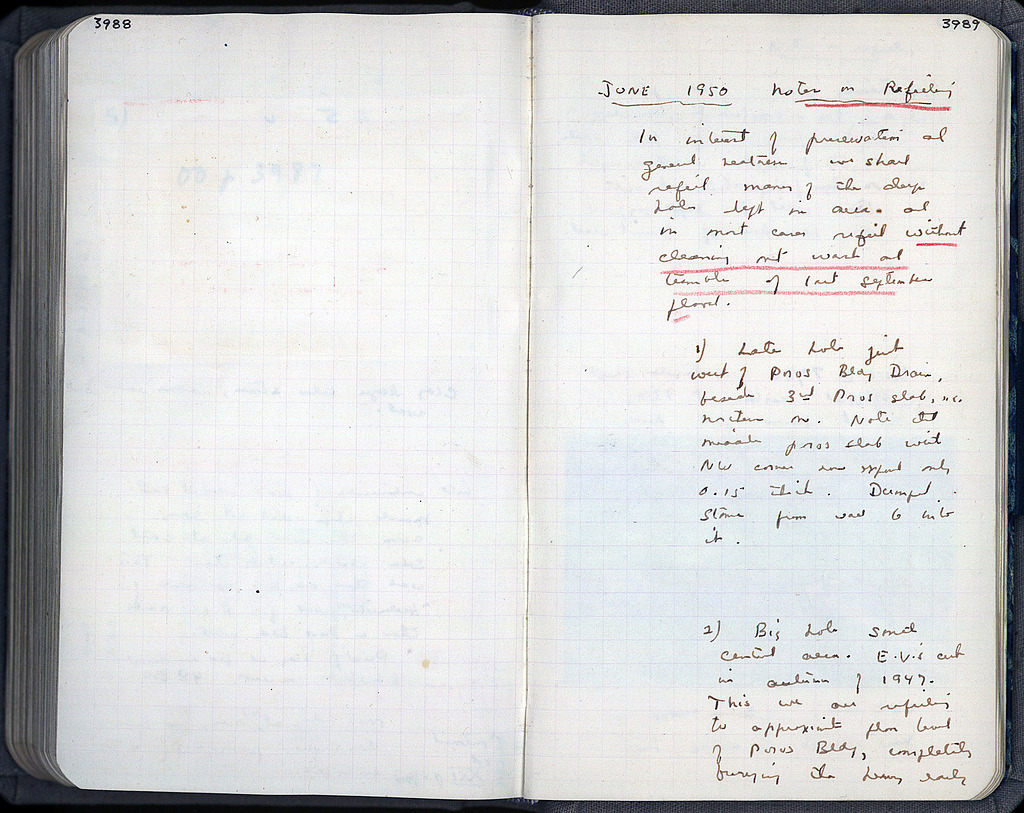 3988
3989
JUNE 1950 Notes on Refilling
In interest of preservation and
general neatness we shall
refill many of the deep
holes left in area. and
in most cases refill without
cleaning out wash and
tumble of last September
flood.
1) Late hole just
west of Poros Bldg Drain,
beside 3rd Poros slab,
Note that
middle poros slab with
NW corner now only
0.15 thick. Dumped
stones from wall 6 into
it.
2) Big hole small
central area. E.V.'s cut
in autumn of 1947.
This we are refilling
to approximate floor level
of Poros Bldg, completely
burying the heavy early